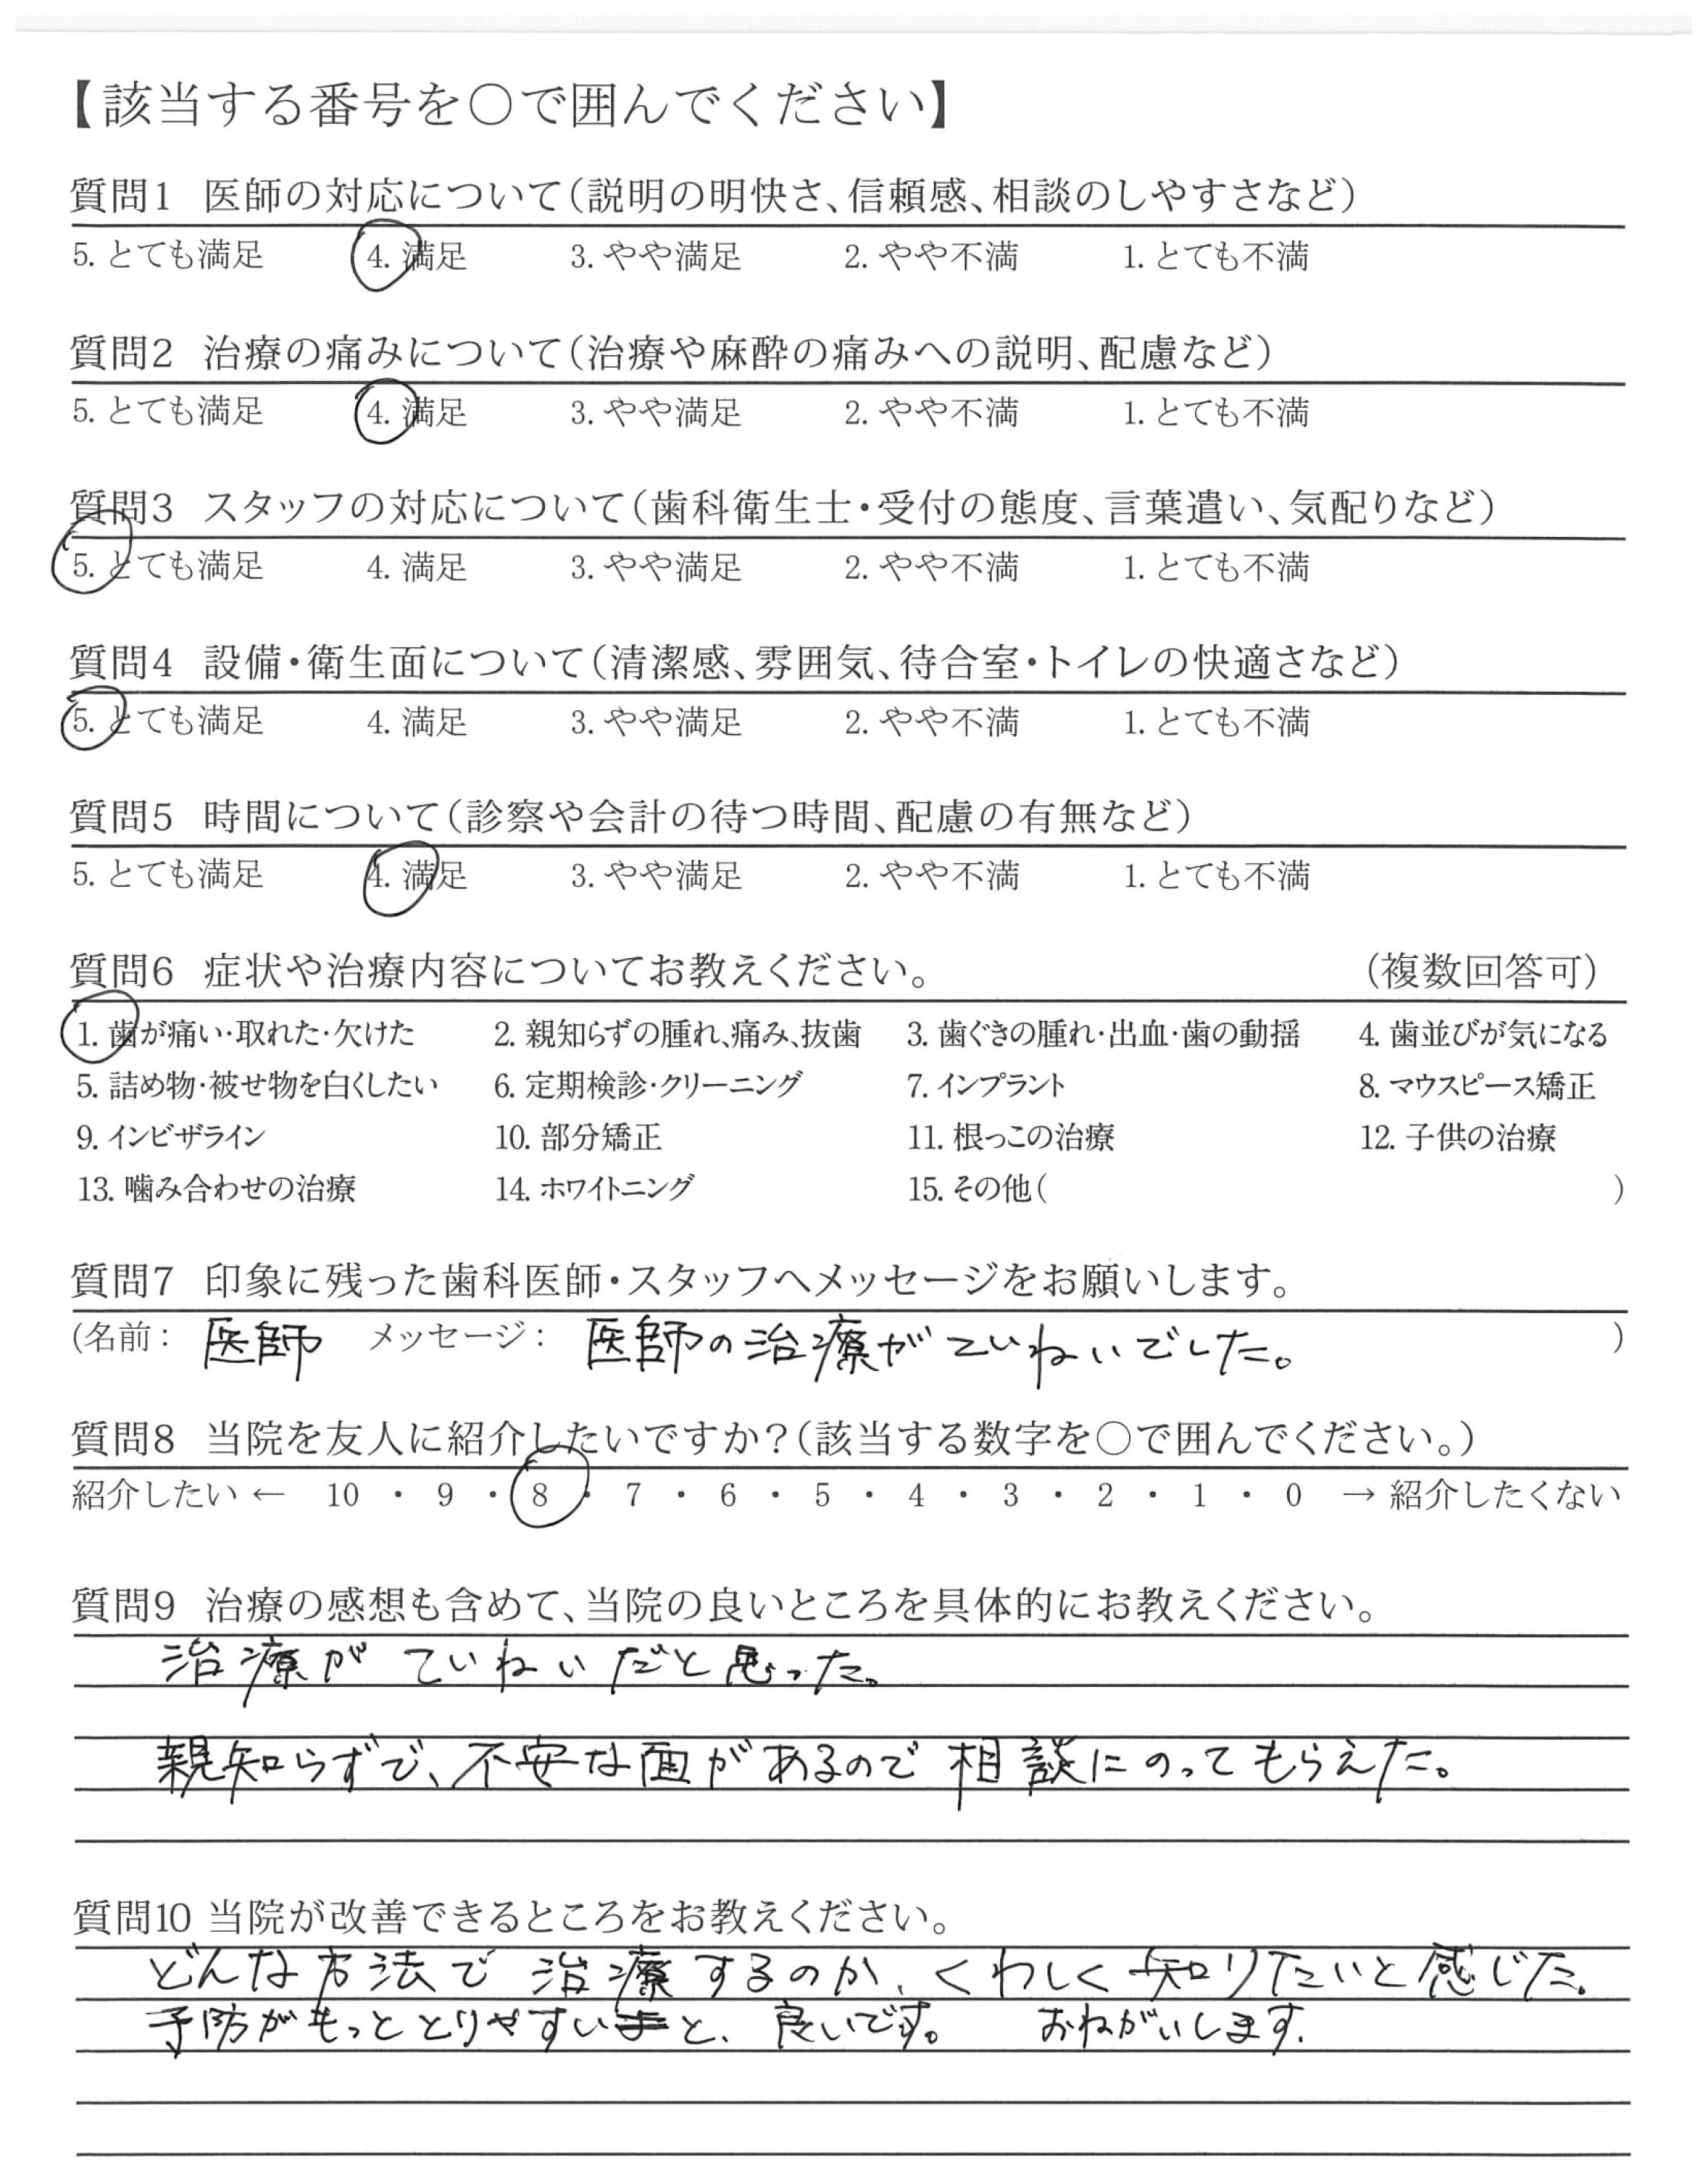 【該当する番号を○で囲んでください】
質問1 医師の対応について(説明の明快さ、信頼感、相談のしやすさなど)
5. とても満足 4. 満足 3. やや満足 2. やや不満 1. とても不満
質問2 治療の痛みについて(治療や麻酔の痛みへの説明、配慮など)
5. とても満足 4. 満足 3. やや満足 2. やや不満 1. とても不満
質問3 スタッフの対応について(歯科衛生士・受付の態度、言葉遣い、気配りなど)
5. とても満足 4. 満足 3. やや満足 2. やや不満 1. とても不満
質問4 設備・衛生面について(清潔感、雰囲気、待合室・トイレの快適さなど)
5. とても満足 4. 満足 3. やや満足 2. やや不満 1. とても不満
質問5 時間について(診察や会計の待つ時間、配慮の有無など)
5. とても満足 4. 満足 3. やや満足 2. やや不満 1. とても不満
質問6 症状や治療内容についてお教えください。 (複数回答可)
1. 歯が痛い・取れた・欠けた 2. 親知らずの腫れ、痛み、抜歯 3. 歯ぐきの腫れ・出血・歯の動揺 4. 歯並びが気になる
5. 詰め物・被せ物を白くしたい 6. 定期検診・クリーニング 7. インプラント 8. マウスピース矯正
9. インビザライン 10. 部分矯正 11. 根っこの治療 12. 子供の治療
13. 噛み合わせの治療 14. ホワイトニング 15. その他( )
質問7 印象に残った歯科医師・スタッフへメッセージをお願いします。
(名前: 医師 メッセージ: 医師の治療がていねいでした。 )
質問8 当院を友人に紹介したいですか?(該当する数字を○で囲んでください。)
紹介したい ← 10 ・ 9 ・ 8 ・ 7 ・ 6 ・ 5 ・ 4 ・ 3 ・ 2 ・ 1 ・ 0 → 紹介したくない
質問9 治療の感想も含めて、当院の良いところを具体的にお教えください。
治療がていねいだと思った。
親知らずで、不安な面があるので相談にのってもらえた。
質問10 当院が改善できるところをお教えください。
どんな方法で治療するのか、くわしく知りたいと感じた。
予防がもっととりやすいと、良いです。 おねがいします。